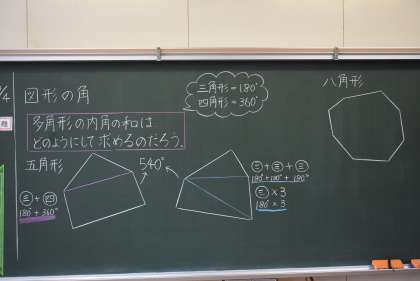 図形の角
三角形=180°
四角形=360°
八角形
多角形の内角の和は
どのようにして求めるのだろう。
五角形
540°
三+四
180°+360°
三+三+三
180°+180°+180°
三×3
180°×3